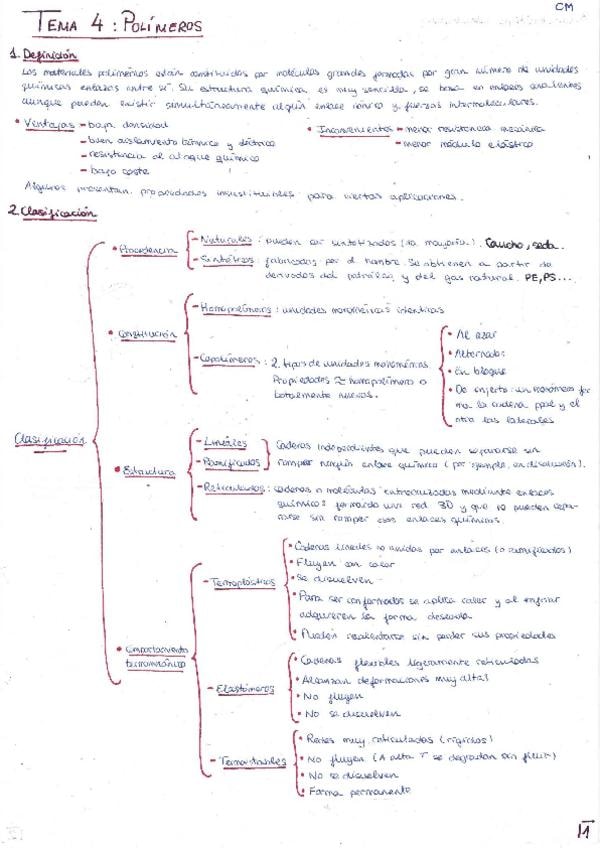 CM
TEMA 4: POLÍMEROS
1. Definición
Los materiales poliméricos están constituidos por moléculas grandes formadas por gran número de unidades
químicas enlazas entre sí. Su estructura química es muy sencilla, se basa en enlaces covalentes
aunque pueden existir simultáneamente algún enlace iónico y fuerzas intermoleculares.
• Ventajas - baja densidad
- buen aislamiento térmico y eléctrico
- resistencia al ataque químico
- bajo coste
• Inconvenientes - menor resistencia mecánica
- menor módulo elástico
Algunos presentan propiedades insustituibles para ciertas aplicaciones.
2. Clasificación
Clasificación
• Procedencia
- Naturales: pueden ser sintetizados (la mayoría). Caucho, seda.
- Sintéticos: fabricados por el hombre. Se obtienen a partir de
derivados del petróleo y del gas natural. PE, PS...
• Constitución
- Homopolímeros: unidades monoméricas idénticas
- Copolímeros: 2 tipos de unidades monoméricas.
Propiedades ≈ homopolímero o
totalmente nuevas.
• Al azar
• Alternados
• En bloque
• De injerto: un monómero for
ma la cadena ppal y el
otro las laterales
• Estructura
- Lineales
- Ramificados
Cadenas independientes que pueden separarse sin
romper ningún enlace químico (por ejemplo, en disolución).
- Reticulados: cadenas o moléculas entrecruzadas mediante enlaces
químicos formando una red 3D y que no pueden sepa-
rarse sin romper esos enlaces químicos.
• Comportamiento
termomecánico
- Termoplásticos
• Cadenas lineales no unidas por enlaces (o ramificados)
• Fluyen con calor
• Se disuelven
• Para ser conformados se aplica calor y al enfriar
adquieren la forma deseada
• Pueden recalentarse sin perder sus propiedades
- Elastómeros
• Cadenas flexibles ligeramente reticuladas
• Alcanzan deformaciones muy altas
• No fluyen
• No se disuelven
- Termoestables
• Redes muy reticuladas (rígidos)
• No fluyen (A alta T se degradan sin fluir)
• No se disuelven
• Forma permanente
1